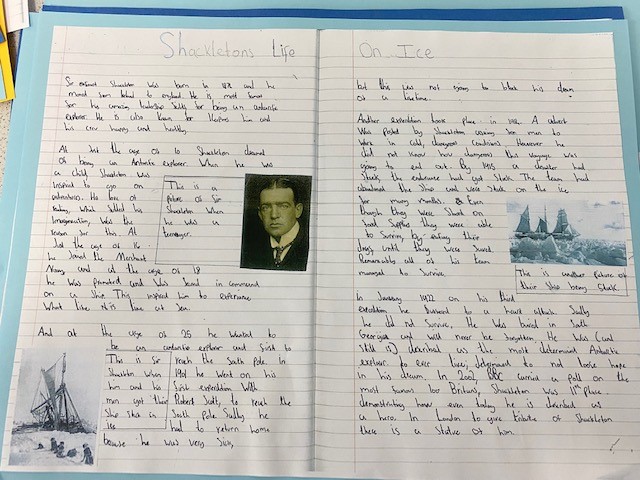 Shackletons Life On Ice
Sir ernest Shackleton was born in 1874 and he
moved from Ireland to england. He is most famous
for his amazing leadership skills for being an antarctic
explorer. He is also known for keeping him and
his crew happy and healthy.
At Just the age of 10 Shackleton dreamed
of being an Antarctic explorer. When he was
a child, Shackleton was
inspired to go on
adventures. His love of
reading, which filled his
imagination, was the
reason for this. At
Just the age of 16
he Joined the Merchant
Navy and at the age of 18
he was promoted and was second in command
on a Ship. This inspired him to experience
What life is like at Sea.
This is a
picture of Sir
Shackleton When
he was a
teenager.
And at the age of 25 he wanted to
be an antarctic explorer and first to
reach the South Pole. In
1901 he went on his
first expedition With
Robert Scott, to reach the
South Pole. Sadly he
had to return home
because he was very Sick,
This is Sir
Shackleton When
him and his
men got their
Ship stuck in
ice
but this was not going to block his dream
of a lifetime.
Another expedition took place in 1914. A advert
Was posted by Shackleton asking for men to
work in cold, dangerous conditions. However he
did not know how dangerous this voyage was
going to end out. By 1915 a disaster had
Struck, the endurance had got Stuck. The team had
abandoned the Ship and were stuck on the ice
for many months. Even
though they were Short on
food Supplies they were able
to Survive, by eating their
dogs until they were Saved.
Remarkably all of his team
managed to Survive.
This is another picture of
their Ship being Stuck.
In January 1922 on his third
expedition he suffered to a heart attack. Sadly
he did not Survive. He Was buried in South
Georgia and will never be forgotten. He Was (and
still is) described as the most determined Antarctic
explorer to ever live, determined to not loose hope
in his dream. In 2002, BBC carried a poll on the
most famous 100 Britons, Shackleton was 11th place
demonstrating how even today he is described as
a hero. In London to give tribute of Shackleton
there is a Statue of him.